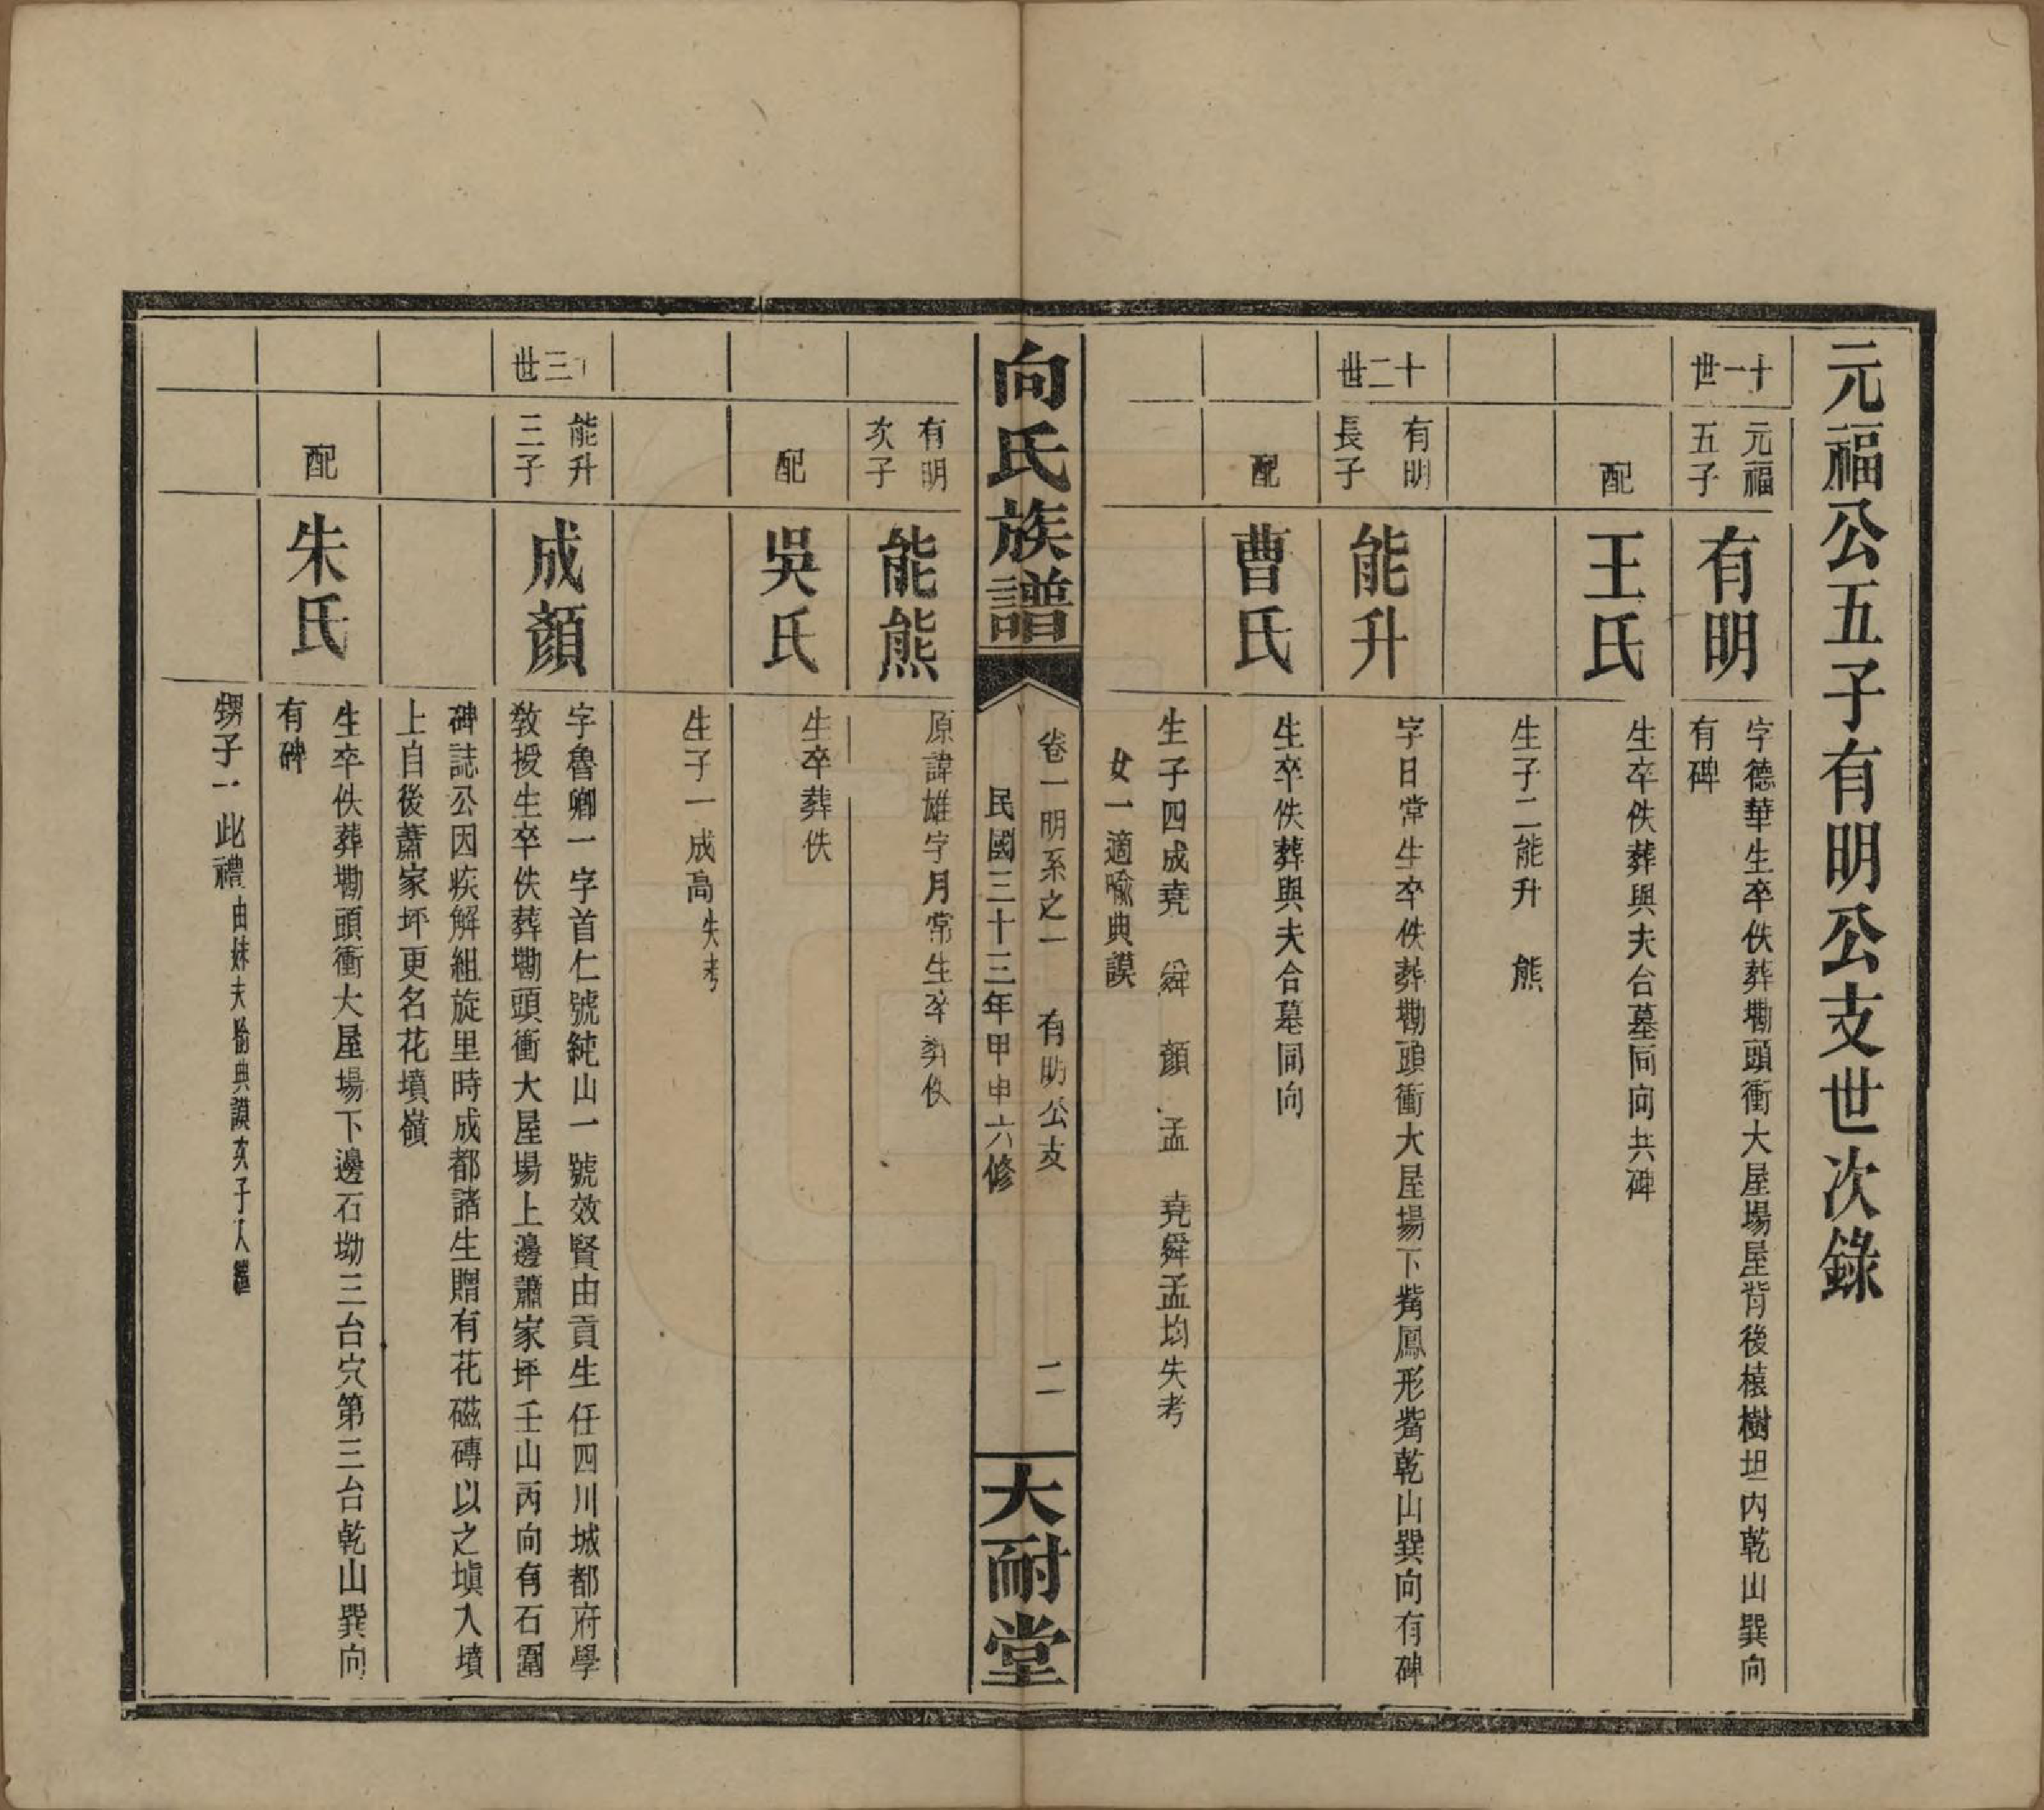 元福公五子有明公支世次錄
十一世
元福
五子
有明
字德華生卒佚葬墈頭衝大屋場屋背後榬樹坦內乾山巽向
有碑
配
王氏
生卒佚葬與夫合墓同向共碑
生子二能升 熊
十二世
有明
長子
能升
字日常生卒佚葬墈頭衝大屋場下觜鳳形觜乾山巽向有碑
配
曹氏
生卒佚葬與夫合墓同向
生子四成堯 舜 顏 孟 堯舜孟均失考
女一適喻典謨
向氏族譜
卷一明系之一 有明公支 二
民國三十三年甲申六修
大耐堂
有明
次子
能熊
原諱雄字月常生卒葬佚
配
吳氏
生卒葬佚
生子一成高失考
十三世
能升
三子
成顏
字魯卿一字首仁號純山一號效賢由貢生任四川城都府學
教授生卒佚葬墈頭衝大屋場上邊蕭家坪壬山丙向有石圍
碑誌公因疾解組旋里時成都諸生贈有花磁磚以之塡入墳
上自後蕭家坪更名花墳嶺
配
朱氏
生卒佚葬墈頭衝大屋場下邊石坳三台穴第三台乾山巽向
有碑
甥子一此禮由妹夫喻典謨次子入繼